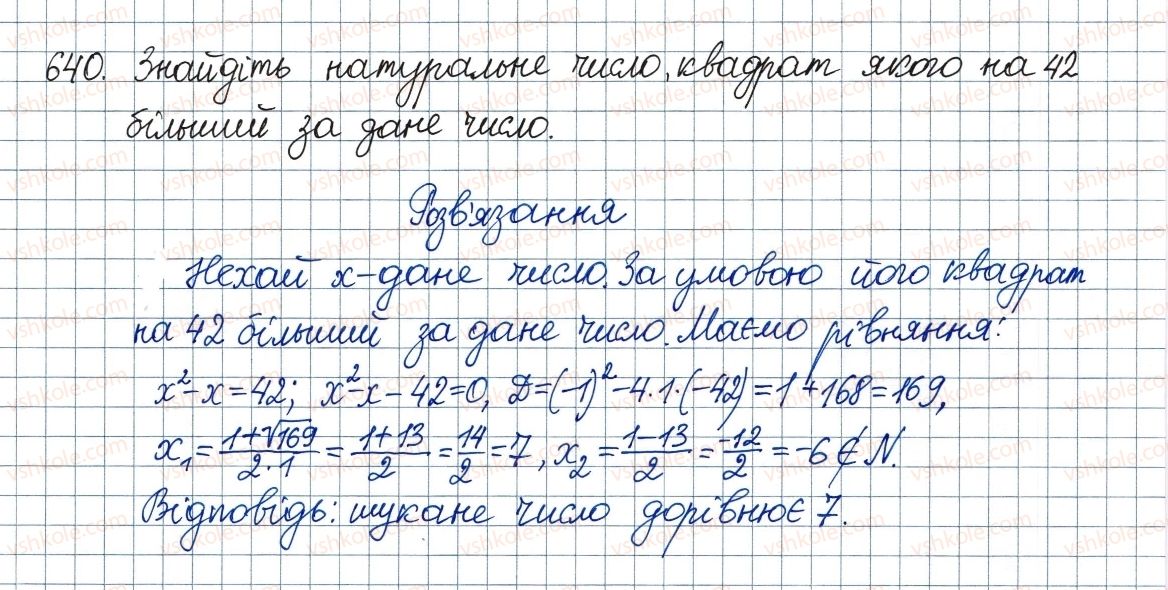 640. Знайдіть натуральне число, квадрат якого на 42
більший за дане число.
Розв'язання
Нехай x – дане число. За умовою його квадрат
на 42 більший за дане число. Маємо рівняння:
x² – x = 42; x² – x – 42 = 0, D = (–1)² – 4·1·(–42) = 1 + 168 = 169,
x₁ = (1+√169)/(2·1) = (1+13)/2 = 14/2 = 7, x₂ = (1–13)/2 = –12/2 = –6 ∉ N.
Відповідь: шукане число дорівнює 7.